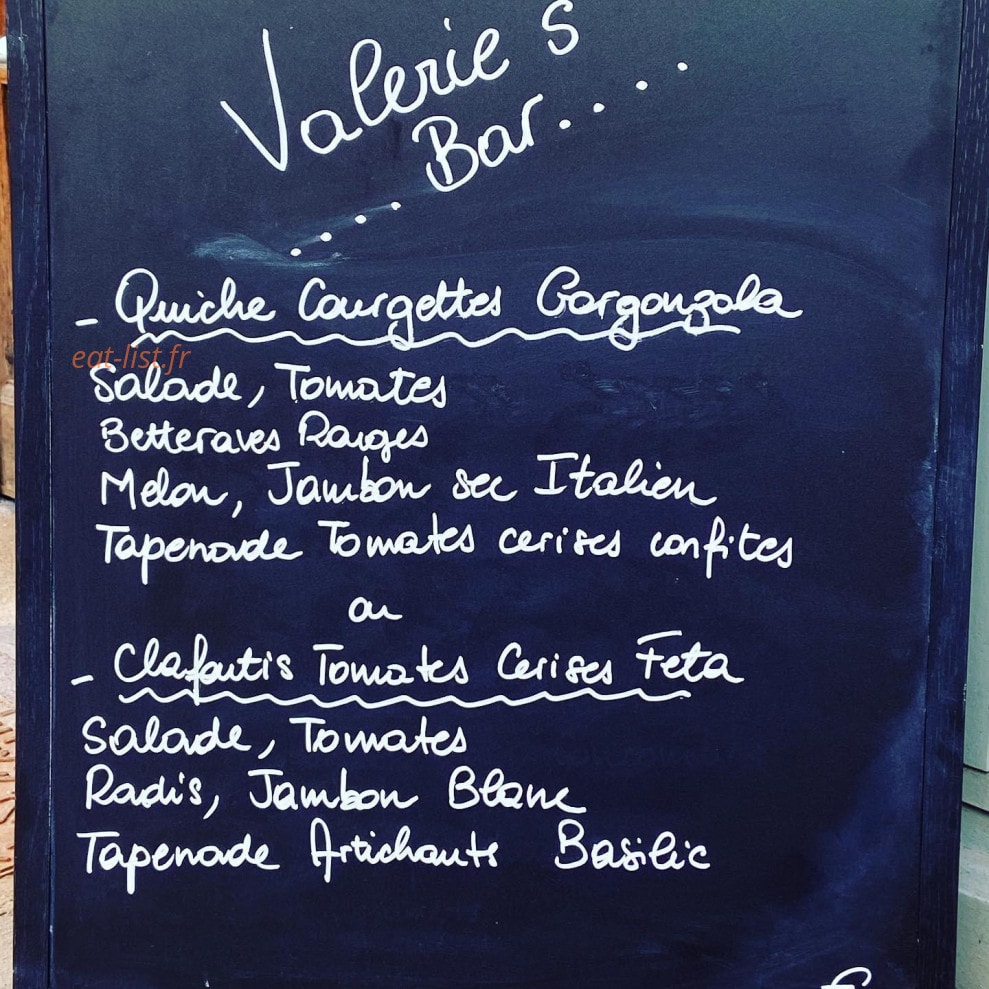 Valerie s
Bar....
....
- Quiche Courgettes Gorgonzola
eat-list.fr
Salade, Tomates
Betteraves Rouges
Melon, Jambon sec Italien
Tapenade Tomates cerises confites
ou
- Clafoutis Tomates Cerises Feta
Salade, Tomates
Radis, Jambon Blanc
Tapenade Artichauts Basilic